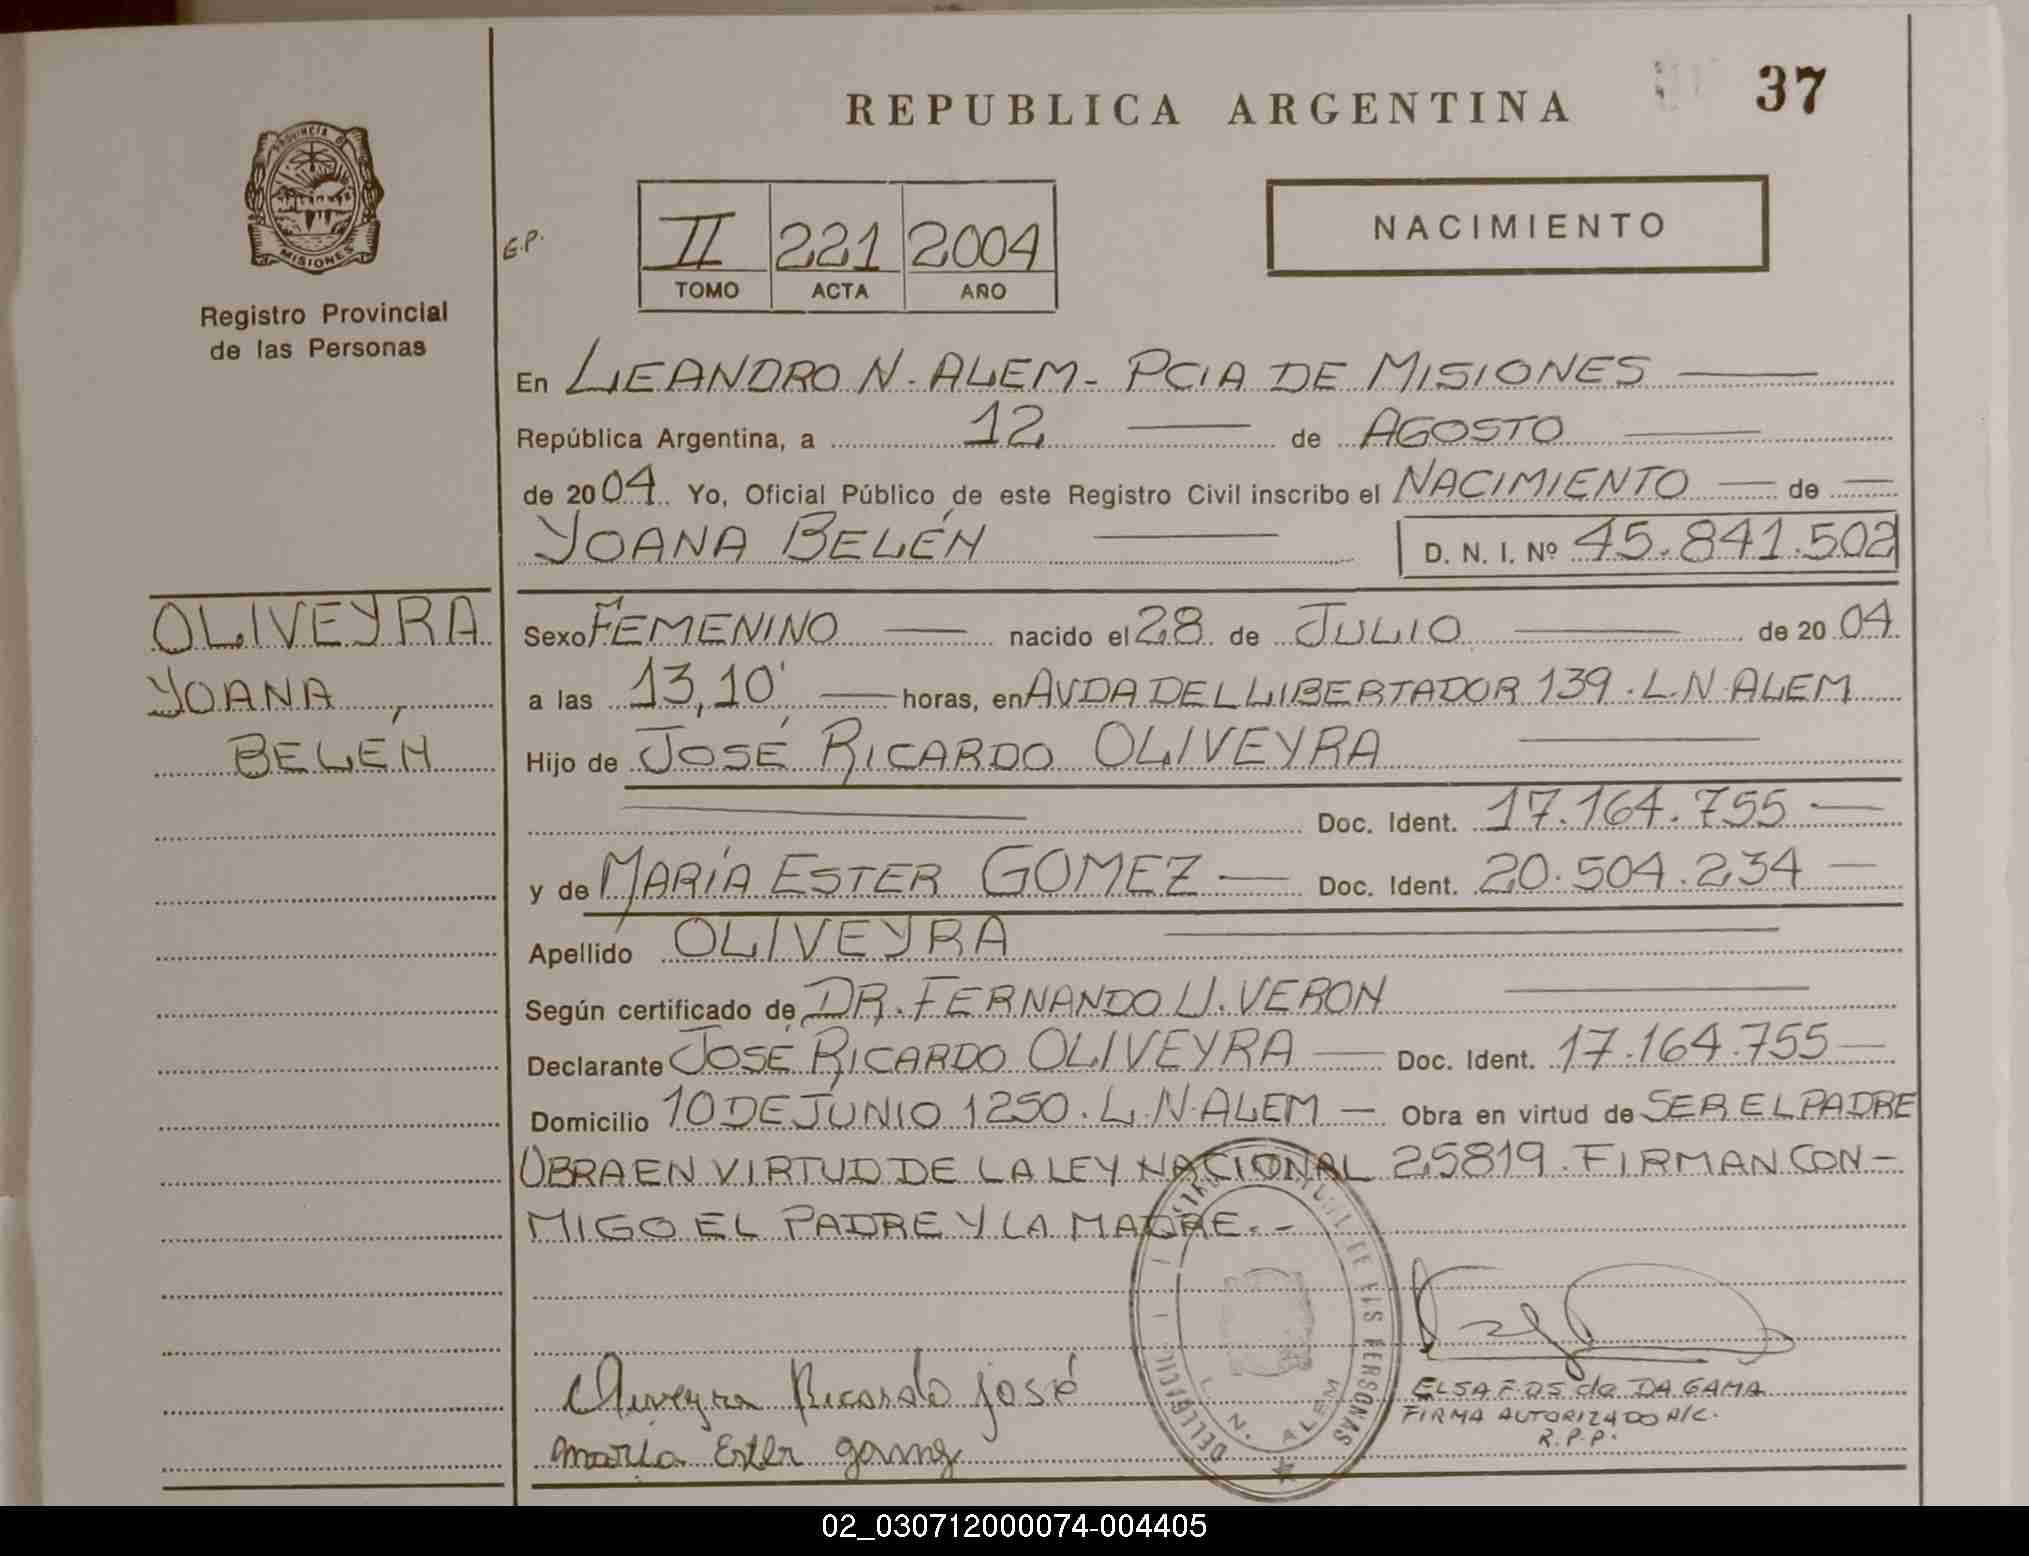 REPUBLICA ARGENTINA
37
PROVINCIA DE
MISIONES
Registro Provincial
de las Personas
E.P.
II 221 2004
TOMO ACTA AÑO
NACIMIENTO
En LEANDRO N. ALEM - PCIA DE MISIONES
República Argentina, a 12 de AGOSTO
de 2004. Yo, Oficial Público de este Registro Civil inscribo el NACIMIENTO de
YOANA BELÉN D. N. I. Nº 45.841.502
OLIVEYRA
YOANA
BELÉN
Sexo FEMENINO nacido el 28 de JULIO de 2004
a las 13,10' horas, en AVDA DEL LIBERTADOR 139. L.N. ALEM
Hijo de JOSÉ RICARDO OLIVEYRA
Doc. Ident. 17.164.755
y de MARÍA ESTER GOMEZ Doc. Ident. 20.504.234
Apellido OLIVEYRA
Según certificado de DR. FERNANDO U. VERON
Declarante JOSÉ RICARDO OLIVEYRA Doc. Ident. 17.164.755
Domicilio 10 DE JUNIO 1250. L.N. ALEM - Obra en virtud de SER EL PADRE
OBRA EN VIRTUD DE LA LEY NACIONAL 25819. FIRMAN CON-
MIGO EL PADRE Y LA MADRE.-
Oliveyra Ricardo José
María Ester gomez
DE LAS PERSONAS
L. N. ALEM
ELSA F. DOS de DA GAMA
FIRMA AUTORIZADO A/C.
R.P.P.
02_030712000074-004405